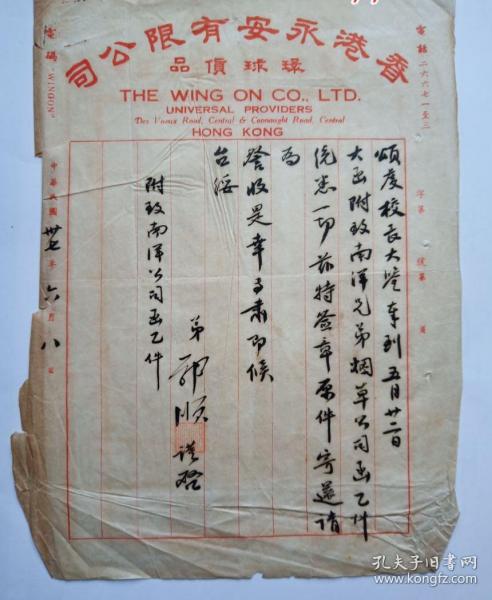 香港永安有限公司
環球貨品
THE WING ON CO., LTD.
UNIVERSAL PROVIDERS
Des Voeux Road, Central & Connaught Road, Central
HONG KONG
電話二六六七一至三
字第 號第 頁
頌虞校長大鑒奉到五月廿二日
大函附致南洋兄弟烟草公司函乙件
統悉一切茲特簽章原件寄還請
為
詧收是幸專肅即候
台綏
弟郭順謹啓
附致南洋公司函乙件
中華民國卅七年六月八日
電碼 "WINGON"
孔夫子旧书网
kongfz.com